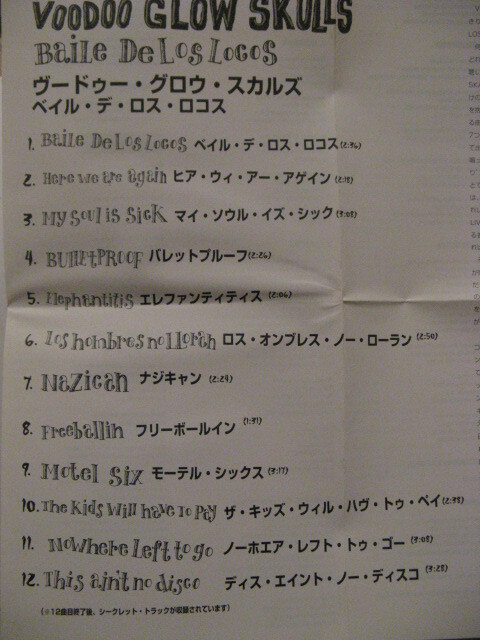 VOODOO GLOW SKULLS
Baile De Los Locos
ヴードゥー・グロウ・スカルズ
ベイル・デ・ロス・ロコス
1. Baile De Los Locos ベイル・デ・ロス・ロコス (2:36)
2. Here we are again ヒア・ウィ・アー・アゲイン (2:18)
3. My Soul is Sick マイ・ソウル・イズ・シック (3:08)
4. BULLETPROOF バレットプルーフ (2:26)
5. Elephantitis エレファンティティス (2:06)
6. Los hombres no lloran ロス・オンブレス・ノー・ローラン (2:50)
7. Nazican ナジキャン (2:24)
8. Freeballin フリーボールイン (1:31)
9. Motel Six モーテル・シックス (3:17)
10. The Kids Will have To Pay ザ・キッズ・ウィル・ハヴ・トゥ・ペイ (2:38)
11. Nowhere Left to go ノーホエア・レフト・トゥ・ゴー (3:08)
12. This ain't no disco ディス・エイント・ノー・ディスコ (3:28)
(※12曲目終了後、シークレット・トラックが収録されています)